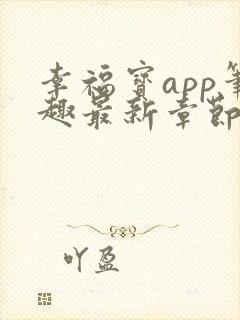 幸福宝app笔
趣最新章节
吖盈